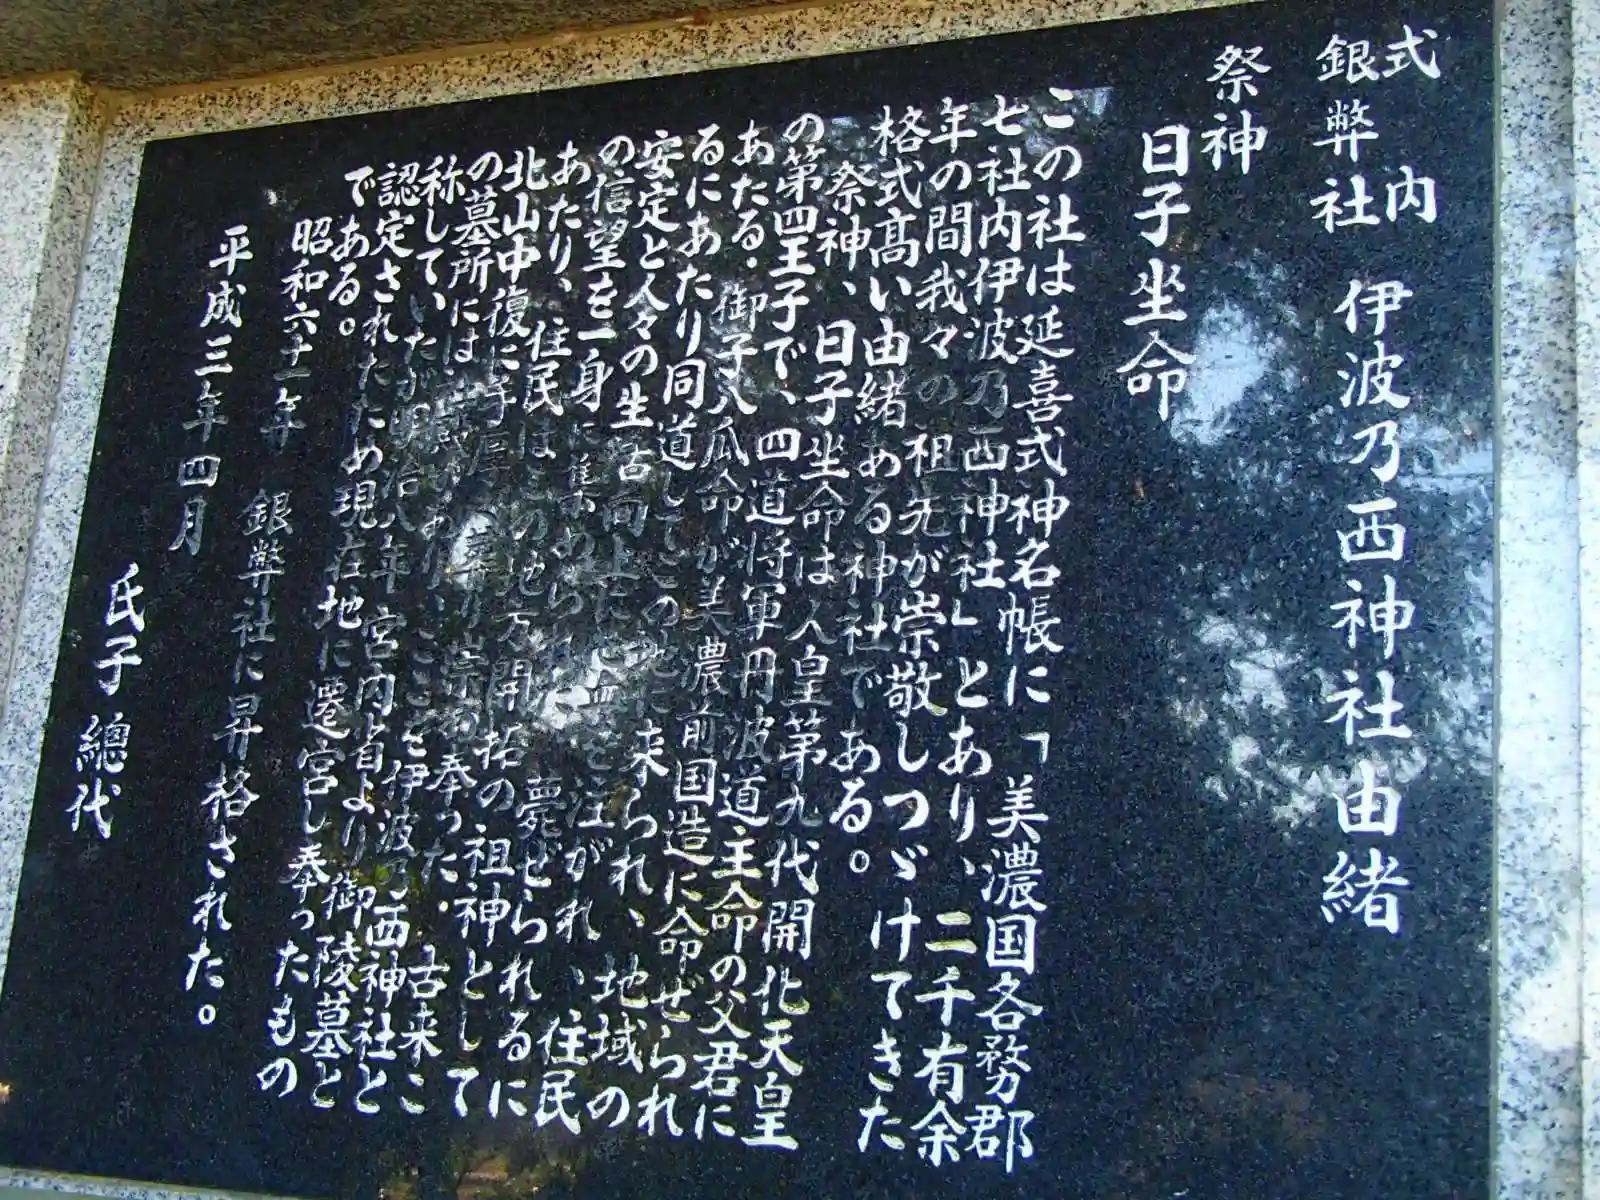 式内
銀弊社 伊波乃西神社由緒
祭神
日子坐命
この社は延喜式神名帳に「美濃国各務郡
七社内伊波乃西神社」とあり、二千有余
年の間我々の祖先が崇敬しつゞけてきた
格式高い由緒ある神社である。
祭神、日子坐命は人皇第九代開化天皇
の第四王子で、四道将軍円波道主命の父君に
あたる。御子八瓜命が美濃前国造に命ぜられ
るにあたり同道してこの地に来られ、地域の
安定と人々の生活向上に心血を注がれ、住民
の信望を一身に集められた 薨ぜられるに
あたり、住民はこの地方開拓の祖神として
北山中復に手厚く葬り崇め奉った。古来こ
の墓所には ここを伊波乃西神社と
称していたが明治八年宮内省より御陵墓と
認定されたため現在地に遷宮し奉ったもの
である。
昭和六十一年 銀弊社に昇格された。
平成三年四月
氏子總代